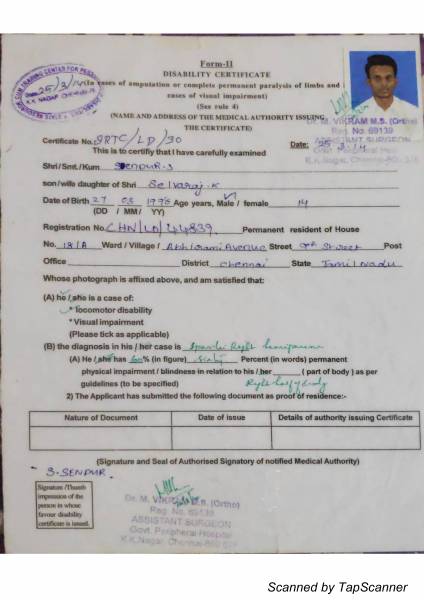 Form-II
DISABILITY CERTIFICATE
(In cases of amputation or complete permanent paralysis of limbs and
cases of visual impairment)
(See rule 4)
(NAME AND ADDRESS OF THE MEDICAL AUTHORITY ISSUING
THE CERTIFICATE)
Dr. M. VIKRAM M.S. (Ortho)
Reg. No. 69139
ASSISTANT SURGEON
Certificate No.: SRTC/LD/30 Date: 25
K.K.Nagar, Chennai
This is to certify that I have carefully examined
Shri/Smt./Kum SENDUR-S
son/wife daughter of Shri Selvaraj.K
Date of Birth 27 03 Age years, Male / female 14
(DD / MM/ YY)
Registration No. CHN/LD/44839 Permanent resident of House
No. 18/A Ward / Village / Avenue Street Street Post
Office District Chennai State Tamil Nadu
Whose photograph is affixed above, and am satisfied that:
(A) he / she is a case of:
* locomotor disability
* Visual impairment
(Please tick as applicable)
(B) the diagnosis in his / her case is Right
(A) He / she has 60% (in figure) Sixty Percent (in words) permanent
physical impairment / blindness in relation to his / her ( part of body ) as per
guidelines (to be specified) Right half of body
2) The Applicant has submitted the following document as proof of residence:-
Nature of Document Date of issue Details of authority issuing Certificate
(Signature and Seal of Authorised Signatory of notified Medical Authority)
S-SENDUR.
Signature /Thumb
impression of the
person in whose
favour disability
certificate is issued.
Dr. M. VIKRAM M.S. (Ortho)
Reg. No. 69139
ASSISTANT SURGEON
Govt. Peripheral Hospital
K.K.Nagar, Chennai-600
Scanned by TapScanner